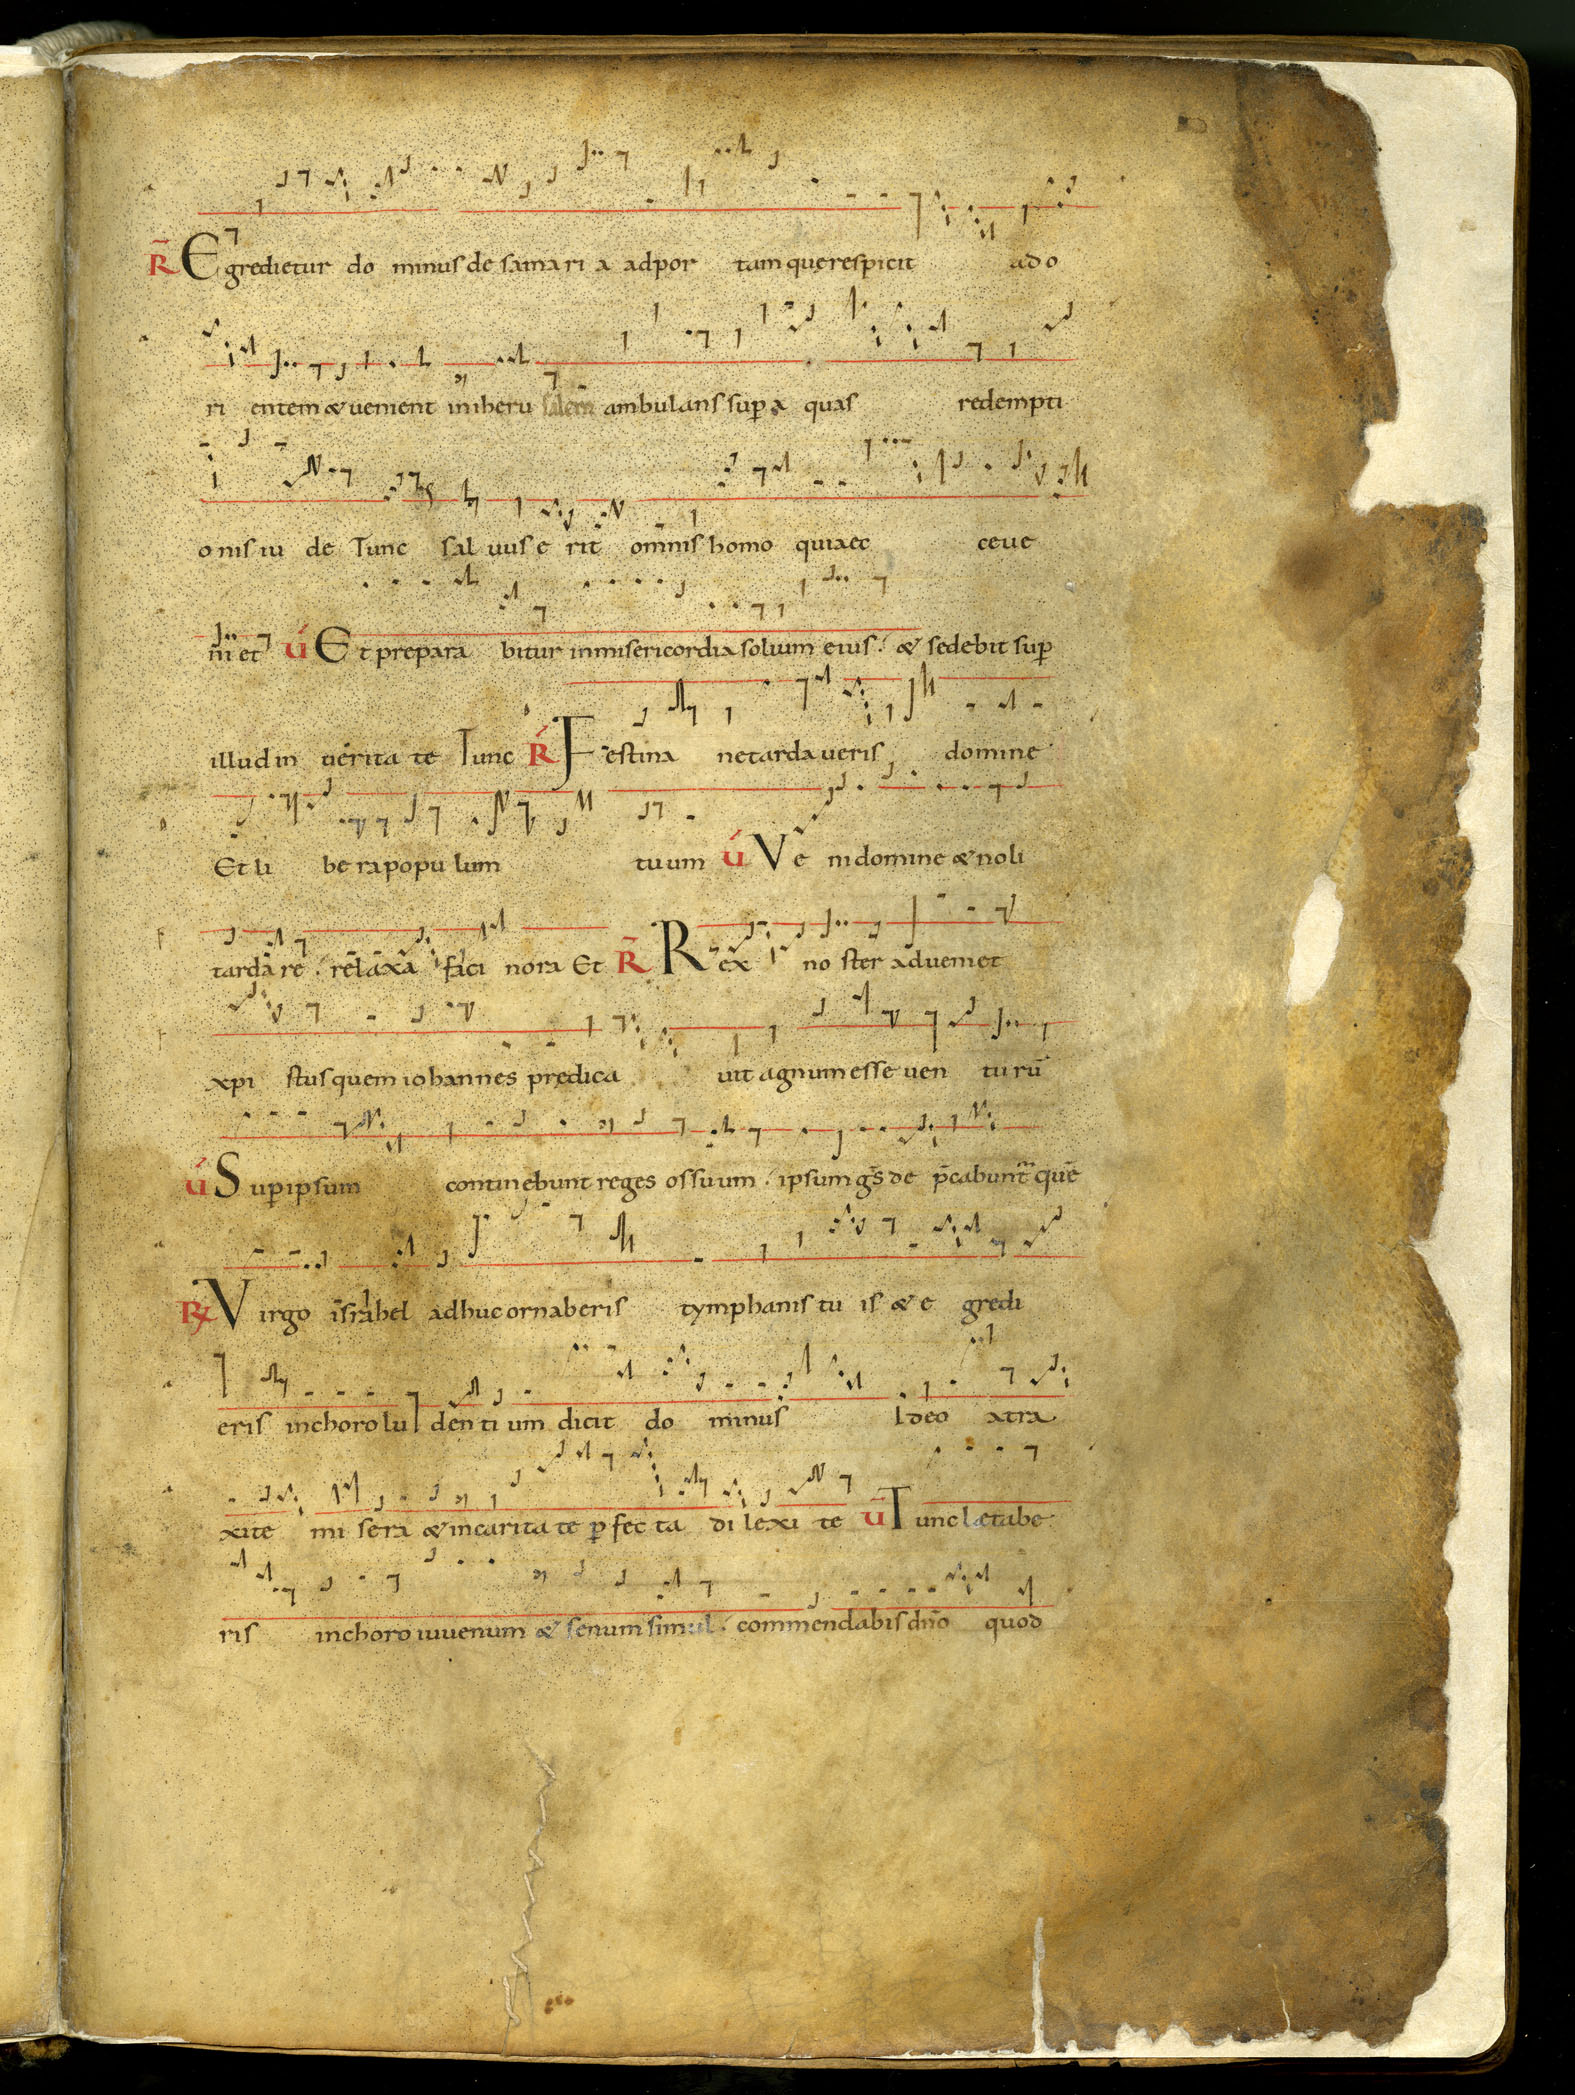 R̃ Egredietur do minus de samari a ad por tam que respicit ad o
ri entem & veniet in iheru salem ambulans sup a quas redempti
onis iu de Tunc sal uus e rit omnis homo quia ec ce ue
ni et V́ Et prepara bitur in misericordia solium eius . & sedebit sup
illud in uerita te Tunc R̃ Festina ne tardaueris domine
Et li be ra popu lum tuum V́ Ve ni domine & noli
tarda re . relaxa faci nora Et R̃ Rex no ster adueniet
xpi stus quem iohannes predica uit agnum esse uen turū
V́ Sup ipsum continebunt reges os suum . ipsum gs de p̄cabunt quē
R Virgo israhel adhuc ornaberis tymphanis tu is & e gredi
eris in choro lu den ti um dicit do minus Ideo atra
xi te mi sera & in carita te p fec ta di lexi te V̄ Tunc lætabe
ris in choro iuuenum & senum simul . commendabis dn̄o quod